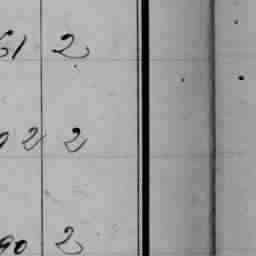 61 2
2 2
90 2